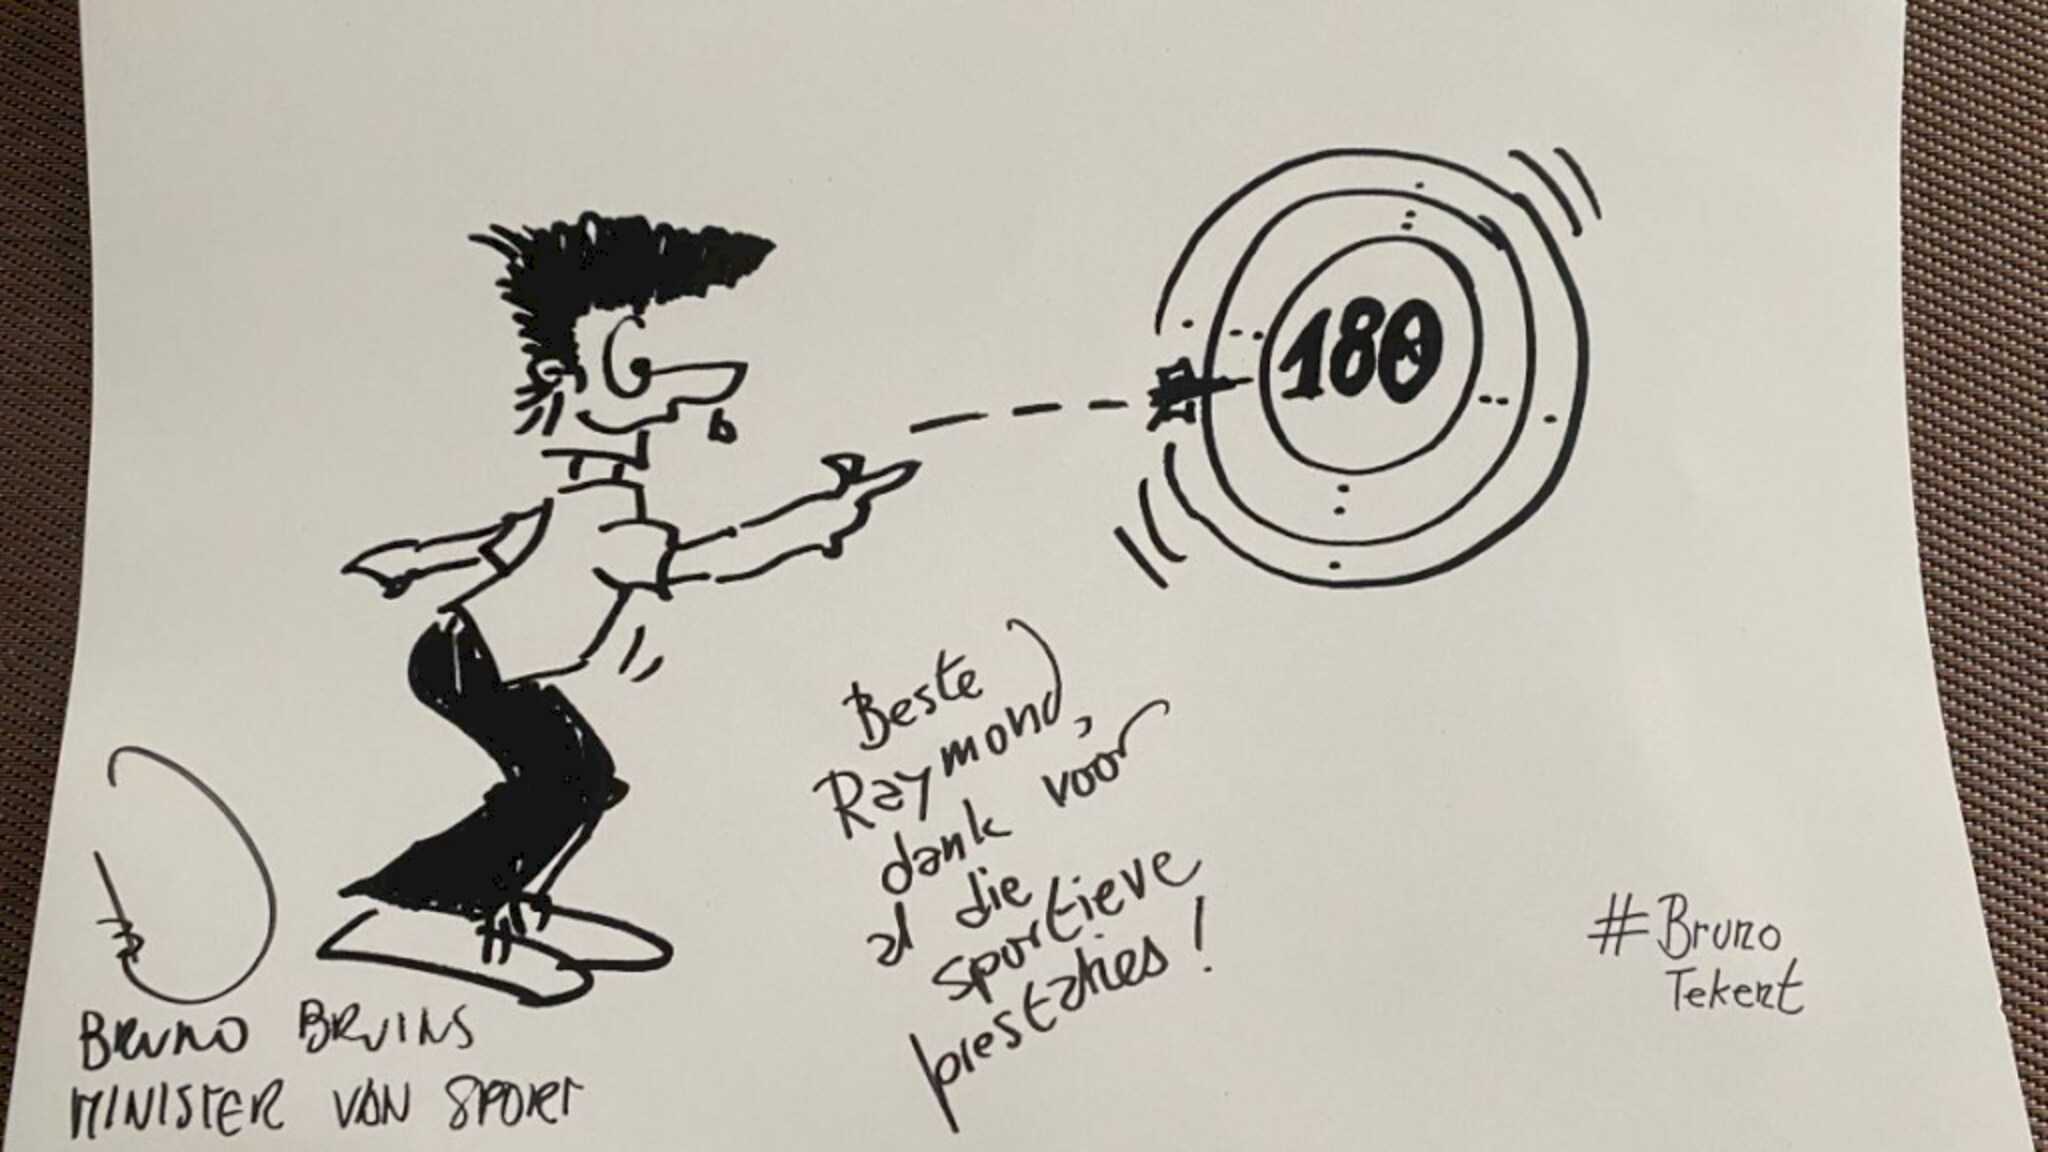 180
Beste
Raymond,
dank voor
al die
sportieve
prestaties!
#Bruno
Tekent
BRUNO BRUINS
MINISTER VAN SPORT